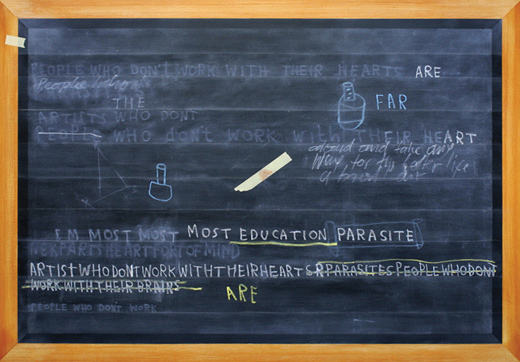 PEOPLE WHO DON'T WORK WITH THEIR HEARTS ARE
People who
THE
FAR
ARTISTS WHO DONT
PEOPLE WHO don't WORK WITH THEIR HEART
aloud and take
way, for
life
I'M MOST MOST MOST EDUCATION PARASITE
PARTS HEART OF MIND
ARTIST WHO DONT WORK WITH THEIR HEARTS R PARASITES PEOPLE WHO DONT
WORK WITH THEIR BRAINS
ARE
PEOPLE WHO DON'T WORK